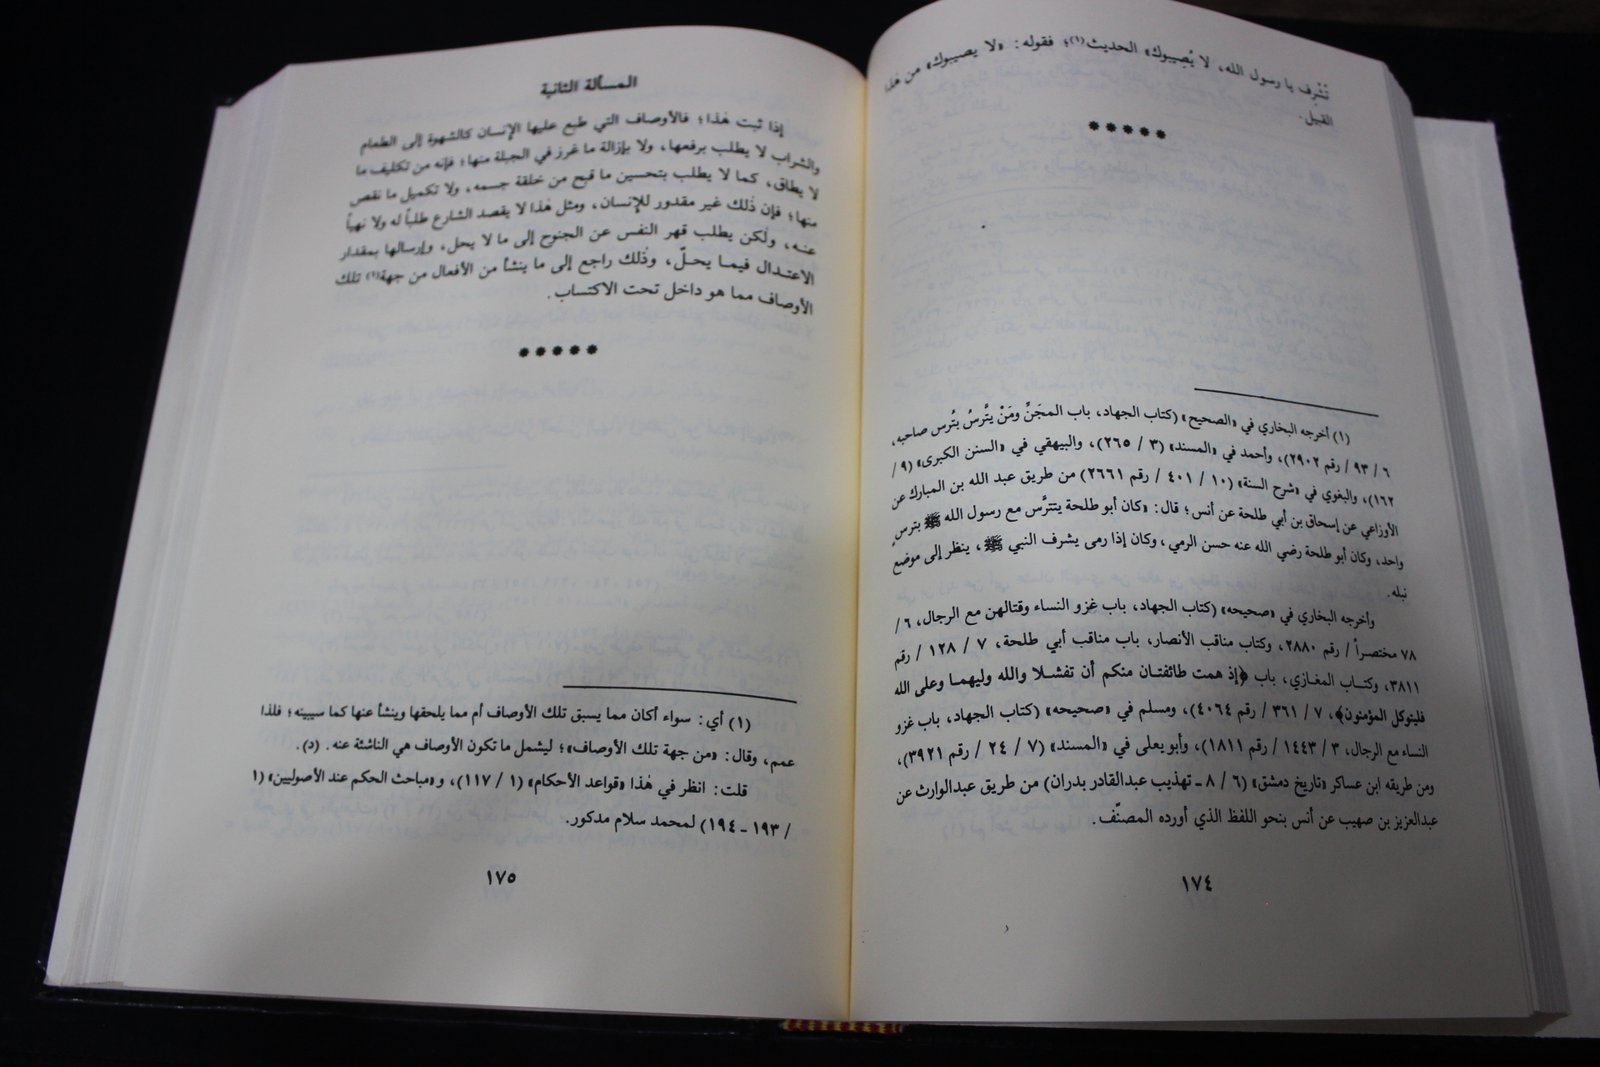 تُشْرِف يا رسول الله، لا يُصِيبوك» الحديث(١)؛ فقوله: «لا يصيبوك» من هٰذا
القبيل.
*****
(١) أخرجه البخاري في «الصحيح» (كتاب الجهاد، باب المجَنِّ ومَنْ يتَّرسُ بتُرس صاحبه،
٦ / ٩٣ / رقم ٢٩٠٢)، وأحمد في «المسند» (٣ / ٢٦٥)، والبيهقي في «السنن الكبرى» (٩ /
١٦٢)، والبغوي في «شرح السنة» (١٠ / ٤٠١ / رقم ٢٦٦١) من طريق عبد الله بن المبارك عن
الأوزاعي عن إسحاق بن أبي طلحة عن أنس؛ قال: «كان أبو طلحة يتترَّس مع رسول الله ﷺ بترسٍ
واحد، وكان أبو طلحة رضي الله عنه حسن الرمي، وكان إذا رمى يشرف النبي ﷺ، ينظر إلى موضع
نبله.
وأخرجه البخاري في «صحيحه» (كتاب الجهاد، باب غزو النساء وقتالهن مع الرجال، ٦ /
٧٨ مختصراً / رقم ٢٨٨٠، وكتاب مناقب الأنصار، باب مناقب أبي طلحة، ٧ / ١٢٨ / رقم
٣٨١١، وكتـاب المغازي، باب ﴿إذ همت طائفتـان منكم أن تفشـلا والله وليهمـا وعلى الله
فليتوكل المؤمنون﴾، ٧ / ٣٦١ / رقم ٤٠٦٤)، ومسلم في «صحيحه» (كتاب الجهاد، باب غزو
النساء مع الرجال، ٣ / ١٤٤٣ / رقم ١٨١١)، وأبو يعلى في «المسند» (٧ / ٢٤ / رقم ٣٩٢١)،
ومن طريقه ابن عساكر «تاريخ دمشق» (٦ / ٨ ـ تهذيب عبدالقادر بدران) من طريق عبدالوارث عن
عبدالعزيز بن صهيب عن أنس بنحو اللفظ الذي أورده المصنّف.
١٧٤
المسألة الثانية
إذا ثبت هٰذا؛ فالأوصاف التي طبع عليها الإنسان كالشهوة إلى الطعام
والشراب لا يطلب برفعها، ولا بإزالة ما غرز في الجبلة منها؛ فإنه من تكليف ما
لا يطاق، كما لا يطلب بتحسين ما قبح من خلقة جسمه، ولا تكميل ما نقص
منها؛ فإن ذٰلك غير مقدور للإنسان، ومثل هٰذا لا يقصد الشارع طلباً له ولا نهياً
عنـه، ولٰكن يطلب قهر النفس عن الجنوح إلى ما لا يحل، وإرسالها بمقدار
الاعتـدال فيمـا يحـلّ، وذٰلك راجع إلى ما ينشأ من الأفعال من جهة(١) تلك
الأوصاف مما هو داخل تحت الاكتساب.
*****
(١) أي: سواء أكان مما يسبق تلك الأوصاف أم مما يلحقها وينشأ عنها كما سيبينه؛ فلذا
عمم، وقال: «من جهة تلك الأوصاف»؛ ليشمل ما تكون الأوصاف هي الناشئة عنه. (د).
قلت: انظر في هٰذا «قواعد الأحكام» (١ / ١١٧)، و«مباحث الحكم عند الأصوليين» (١
/ ١٩٣ ـ ١٩٤) لمحمد سلام مدكور.
١٧٥